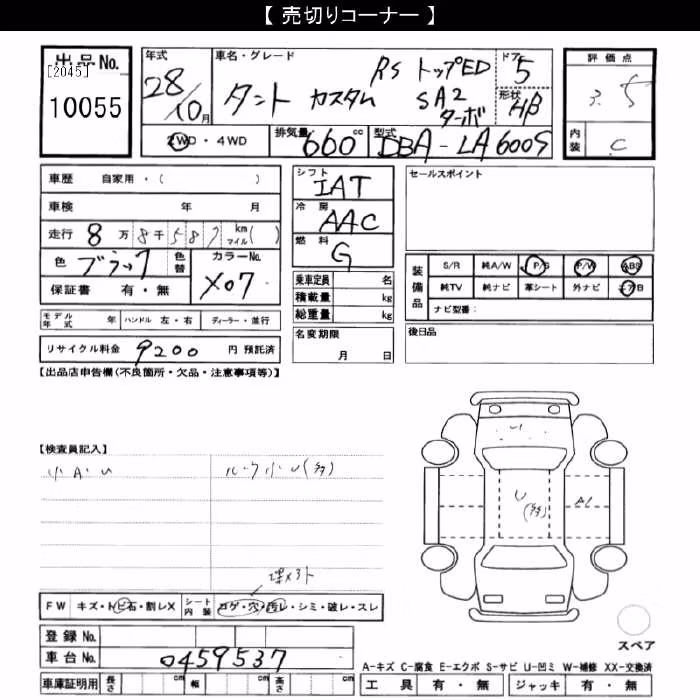 【 売切りコーナー 】
出品No.
[2045]
10055
年式
28/10月
車名・グレード
RS トップED
タント カスタム SA2
ターボ
ドア
5
形状
HB
評価点
3.5
内装
C
2WD・4WD
排気量 660 cc
型式 DBA-LA600S
車歴 自家用・( )
車検 年 月
走行 8万8千587 km マイル( )
色 ブラック 色替
カラーNo.
X07
保証書 有・無
シフト
IAT
冷房
AAC
燃料
G
乗車定員 名
積載量 kg
総重量 kg
セールスポイント
装備品
S/R 純A/W P/S P/W ABS
純TV 純ナビ 革シート 外ナビ エアB
ナビ型番:
モデル年式 年 ハンドル 左・右 ディーラー・並行
リサイクル料金 9200 円 預託済
名変期限
月 日
後日品
【出品店申告欄(不良箇所・欠品・注意事項等)】
【検査員記入】
小A・U
ルーフ小U(多)
U
U
(多)
A1
コゲ・穴・汚レ・シミ・破レ・スレ
FW キズ・トビ石・割レX
シート内装
登録No.
車台No. 0459537
スペア
A-キズ C-腐食 E-エクボ S-サビ U-凹ミ W-補修 XX-交換済
車庫証明用 長さ cm 幅 cm 高さ cm
工具 有・無 ジャッキ 有・無